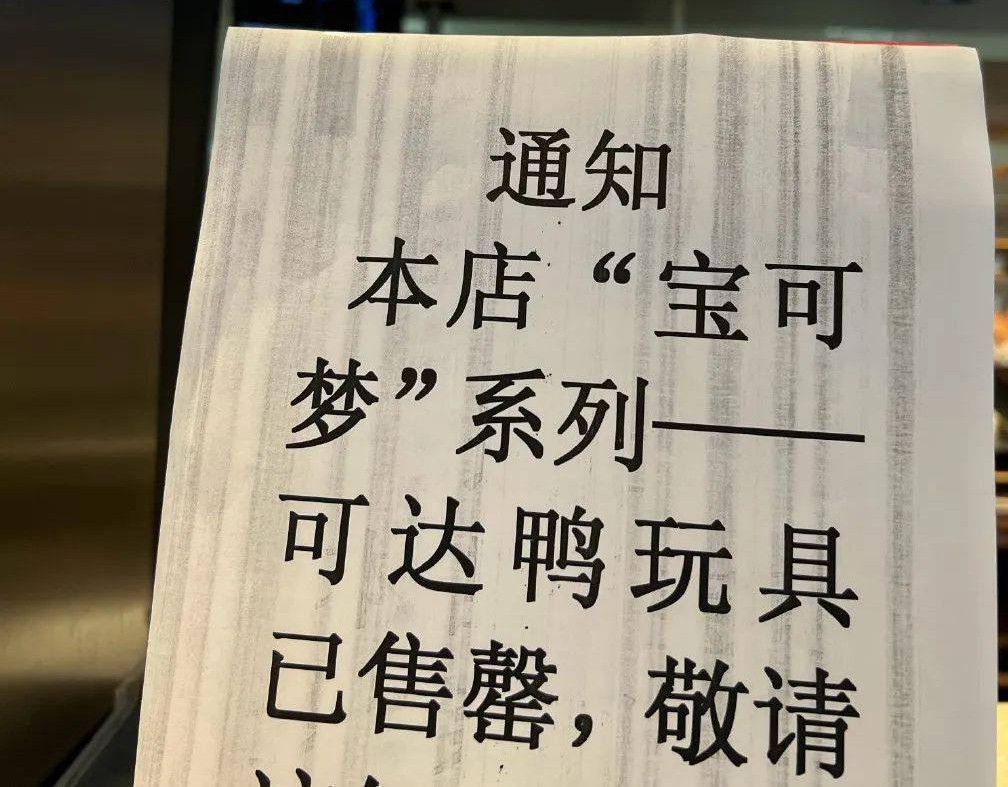 通知
本店“宝可
梦”系列——
可达鸭玩具
已售罄，敬请